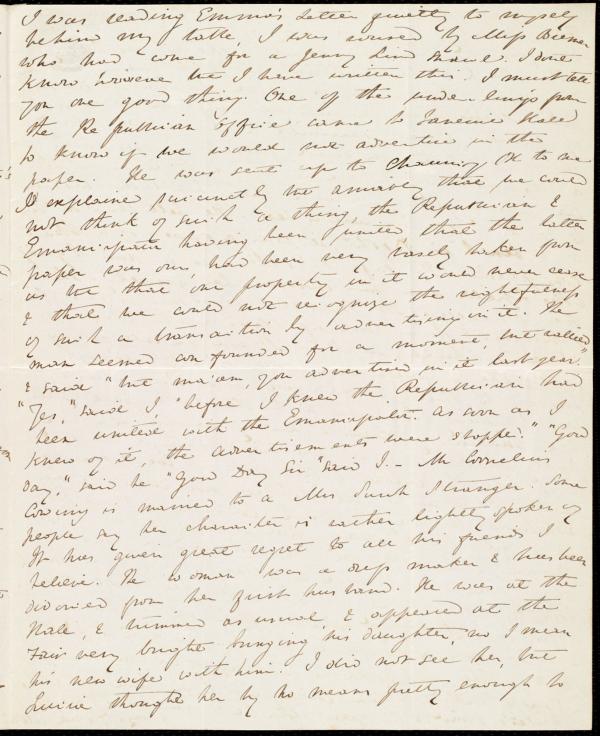 I was reading Emma's letter quietly to myself
behind my table, I was roused by Miss
who had come for a Jenny Lind I dont
know however that I have written this. I must tell
you one good thing. One of the underlings from
the Republican Office came to Faneuil Hall
to know if we would not advertise in the
paper. He was sent up to Channing to me
I explained succinctly but amiably that we could
not think of such a thing, the Republican &
Emancipator having been united that the latter
paper was ours, had been very basely taken from
us but that our property in it would never cease
& that we could not recognize the rightfulness
of such a transaction by advertising in it. The
man seemed confounded for a moment, but rallied
& said "but ma'am, you advertised in it last year."
"Yes," said I, "before I knew the Republican had
been united with the Emancipator. As soon as I
knew of it, the advertisements were stopped." "Good
day," said he "Good Day Sir" said I. - Mr Cornelius
is married to a Mrs Stranger. Some
people say her character is rather lightly spoken of
It has given great regret to all his friends I
believe. The woman was a dress maker & has been
divorced from her first husband. He was at the
Hale, & as usual, & appeared at the
Fair very bright bringing his daughter, no I mean
his new wife with him. I did not see her, but
thought her by no means pretty enough to